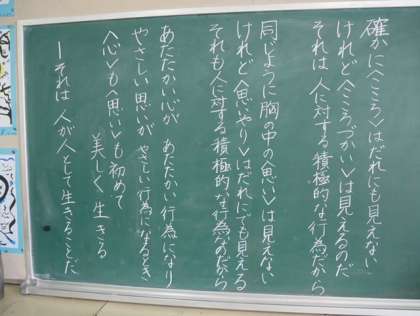 確かに〈こころ〉はだれにも見えない
けれど〈こころづかい〉は見えるのだ
それは 人に対する積極的な行為だから
同じように胸の中の〈思い〉は見えない
けれど〈思いやり〉はだれにでも見える
それも人に対する積極的な行為なのだから
あたたかい心が あたたかい行為になり
やさしい思いが やさしい行為になるとき
〈心〉も〈思い〉も初めて
美しく生きる
―それは 人が人として生きることだ